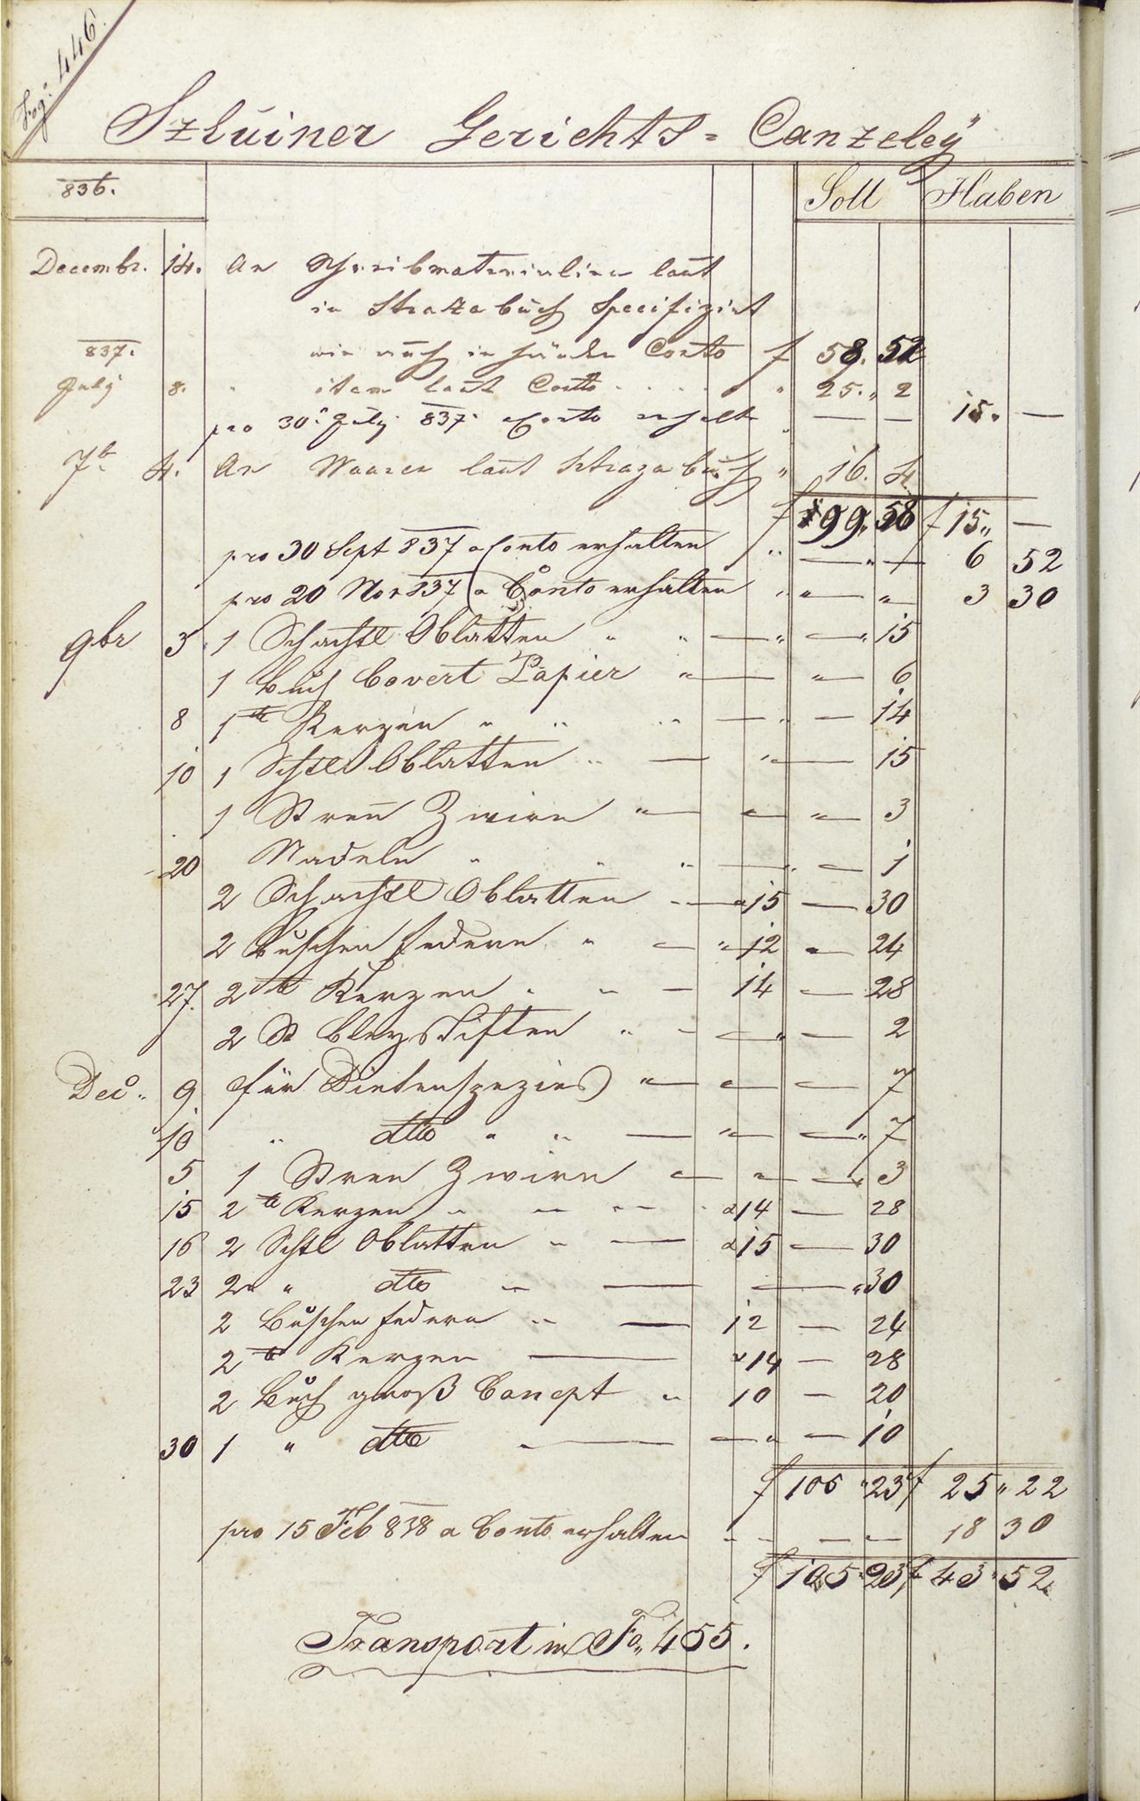 Fog: 446.
Szluiner Gerichts = Canzeleÿ
836. Soll Haben
Decembr. 14. An Schreibmaterialien laut
in Strazabuch Specifizirt
837. wie auch in Conto f 58. 52
July 8. " item laut Conto . . . . " 25. " 2
pro 30t July 837. a Conto erhalt " — — 15. —
7br 4. An Waaren laut Strazabuch " 16. 4
f 99 " 58 f 15 " —
pro 30 Sept 837 a Conto erhalten " — " — 6 52
pro 20 Nov 837 a Conto erhalten " " — " 3 30
9br 5 1 Schachtl Oblatten " " — " — " 15
1 Buch Covert Papier " — " — 6
8 1 ℔ Kerzen " " " — " — 14
10 1 Schtl Oblatten " — " — 15
1 Stren Zwirn " — " — " — 3
20 Nadeln " " " — " — 1
2 Schachtl Oblatten " — a 15 — 30
2 Buschen Federn " — " 12 " — 24
27. 2 ℔ Kerzen " " — 14 — 28
2 St Bleystiften " — — " — 2
Dec. 9 für Dintenspezies " — " — — 7
10 " dtto " " — " — — " 7
5 1 Stren Zwirn — " — — " 3
15 2 ℔ Kerzen " " " a 14 — 28
16 2 Schtl Oblatten " — a 15 — 30
23 2 " " dtto " — — " 30
2 Buschen Federn " — 12 — 24
2 ℔ Kerzen — a 14 — 28
2 Buch groß Concept " 10 — 20
30 1 " dtto " — — " — 10
f 105 " 23 f 25 " 22
pro 15 Feb 838 a Conto erhalten — — — — 18 30
f 105 " 23 f 43 " 52
Transport in Fo. 455.